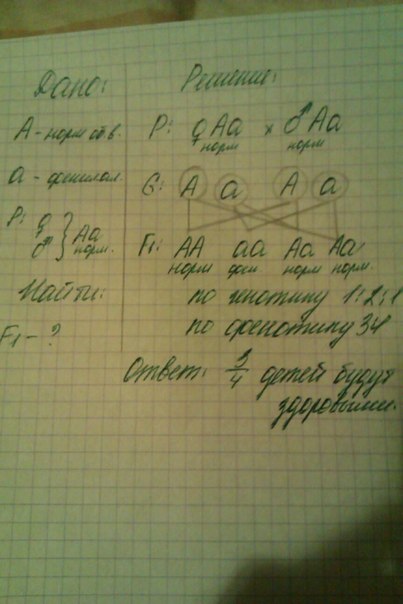 Дано:
А - норм отв.
а - фенилал.
Р: ♀ ♂ } Аа норм.
Найти:
F1 - ?
Решение:
Р: ♀ Аа х ♂ Аа
норм норм
G: А а А а
F1: АА аа Аа Аа
норм фен норм норм.
по генотипу 1:2:1
по фенотипу 3:1
Ответ: 3/4 детей будут
здоровыми.